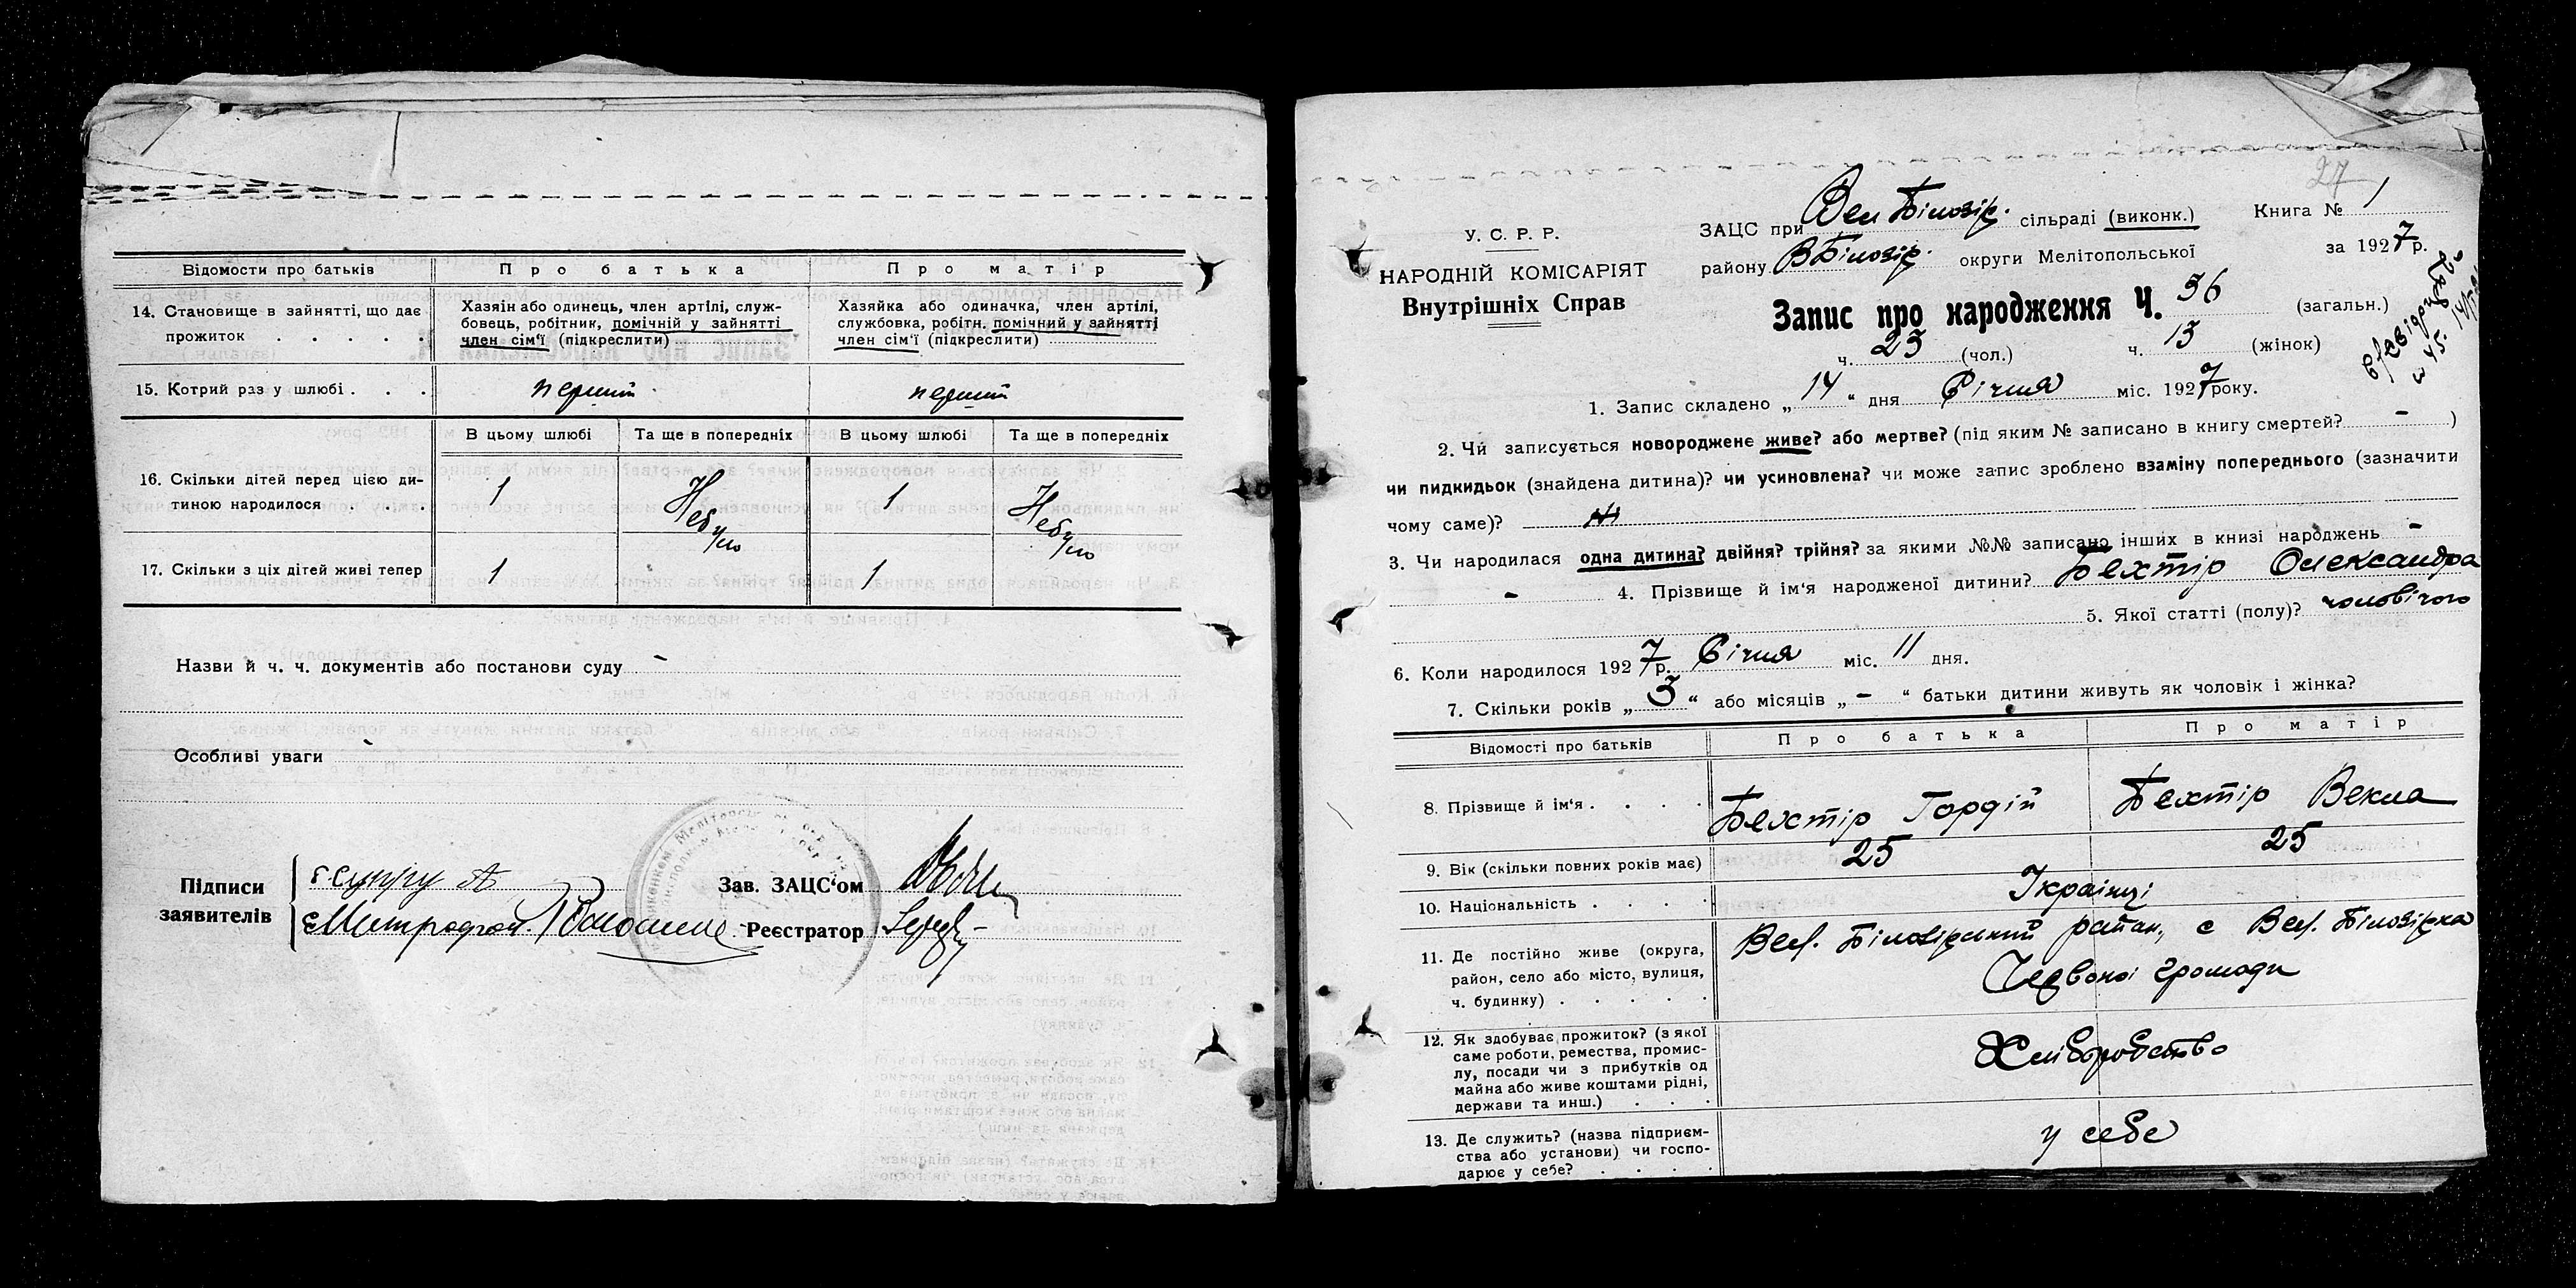 Відомости про батьків
Про батька
Про матір
14. Становище в зайнятті, що дає прожиток . . . . .
Хазяін або одинець, член артілі, служ-
бовець, робітник, помічній у зайнятті
член сім'ї (підкреслити)
Хазяйка або одиначка, член артілі,
службовка, робітн. помічний у зайнятті
член сім'ї (підкреслити)
15. Котрий раз у шлюбі . . .
перший
перший
В цьому шлюбі
Та ще в попередніх
В цьому шлюбі
Та ще в попередніх
16. Скільки дітей перед цією ди-
тиною народилося . . . .
1
Не було
1
Не було
17. Скільки з ціх дітей живі тепер
1
1
Назви й ч. ч. документів або постанови суду -
Особливі уваги -
Підписи
заявителів
Зав. ЗАЦС'ом
Реєстратор
27
У. С. Р. Р.
НАРОДНІЙ КОМІСАРІЯТ
Внутрішніх Справ
ЗАЦС при Вел Білозір. сільраді (виконк.)
Книга № 1
району ВБілозір. округи Мелітопольської
за 1927 р.
Запис про народження Ч. 36 (загальн.)
ч. 23 (чол.) ч. 13 (жінок)
1. Запис складено „14“ дня Січня міс. 1927 року.
2. Чи записується новороджене живе? або мертве? (під яким № записано в книгу смертей? - )
чи пидкидьок (знайдена дитина)? чи усиновлена? чи може запис зроблено взаміну попереднього (зазначити
чому саме)?
3. Чи народилася одна дитина? двійня? трійня? за якими №№ записано інших в книзі народжень -
- 4. Прізвище й ім'я народженої дитини? Бехтір Олександра
5. Якої статті (полу)? чоловічого
6. Коли народилося 1927 р. Січня міс. 11 дня.
7. Скільки років „3“ або місяців „-“ батьки дитини живуть як чоловік і жінка?
Відомості про батьків
Про батька
Про матір
8. Прізвище й ім'я . . . .
Бехтір Гордій
Бехтір Векла
9. Вік (скільки повних років має)
25
25
10. Національність . . . .
Українці
11. Де постійно живе (округа,
район, село або місто, вулиця,
ч. будинку) . . . . .
Вел. Білозірський район, с Вел. Білозірка
Червоної громади
12. Як здобуває прожиток? (з якої
саме роботи, ремества, промис-
лу, посади чи з прибутків од
майна або живе коштами рідні,
держави та инш.) . . .
Хліборобство
13. Де служить? (назва підприєм-
ства або установи) чи госпо-
дарює у себе? . . . .
у себе